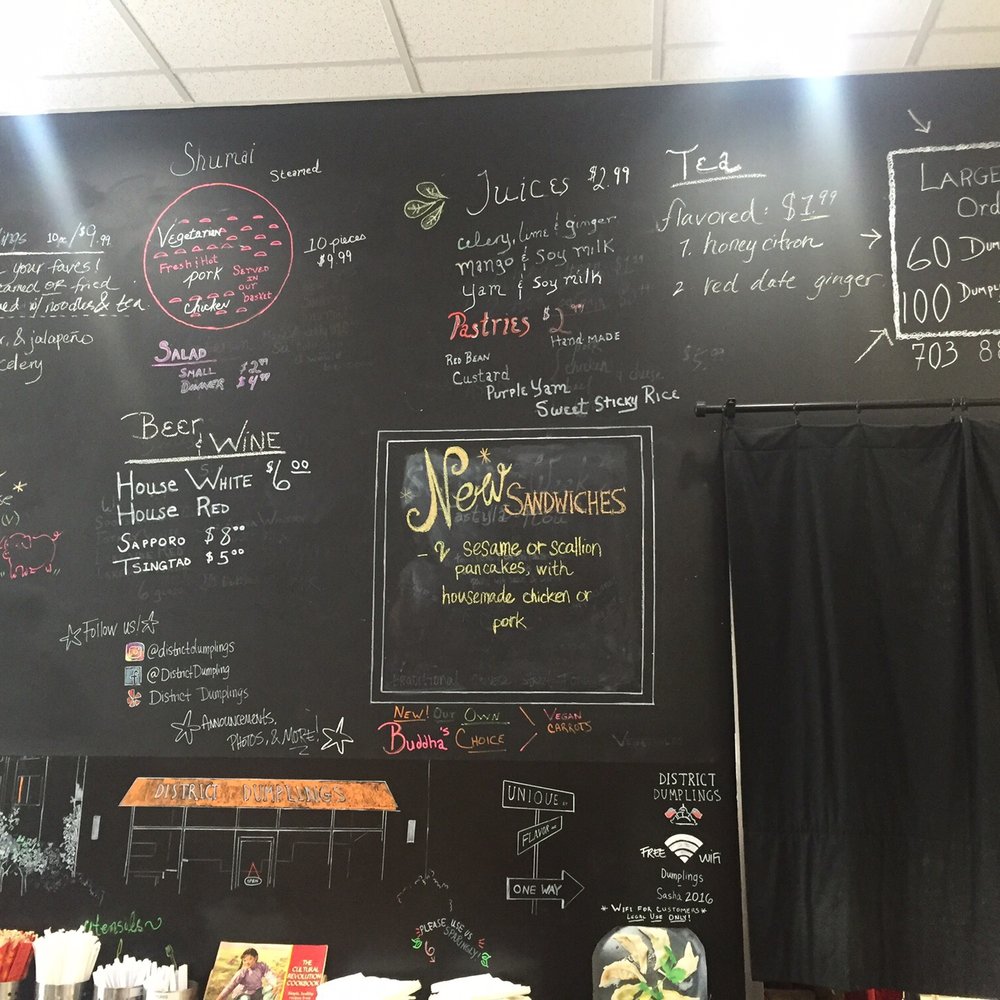 10pc / $9.99
your faves!
or fried
w/ noodles & tea.
& jalapeño
celery
(V)
Shumai
Steamed
Vegetarian
Fresh & Hot
pork
Served
in
our
basket
chicken
10 pieces
$9.99
Salad
Small $2.99
Dinner $4.99
Beer
& Wine
House White $6.00
House Red
Sapporo $8.00
Tsingtao $5.00
Follow us!
@districtdumplings
@DistrictDumpling
District Dumplings
Announcements,
Photos, & More!
Juices $2.99
celery, lime & ginger
Mango & Soy milk
Yam & Soy milk
Pastries $2.99
Hand made
Red Bean
Custard
Purple Yam
Sweet Sticky Rice
New Sandwiches
- 2 sesame or scallion
pancakes, with
housemade chicken or
pork
New! Our Own
Buddha's Choice
Vegan
Carrots
Tea
flavored: $1.99
1. honey citron
2 red date ginger
Large
Ord
60 Dum
100 Dumpl
703 8
District Dumplings
Open
Unique St
Flavor Ave
One Way
District
Dumplings
Free WiFi
Dumplings
Sasha 2016
* WiFi for customers *
Legal Use Only!
utensils
Please use us
sparingly!
The
Cultural
Revolution
Cookbook